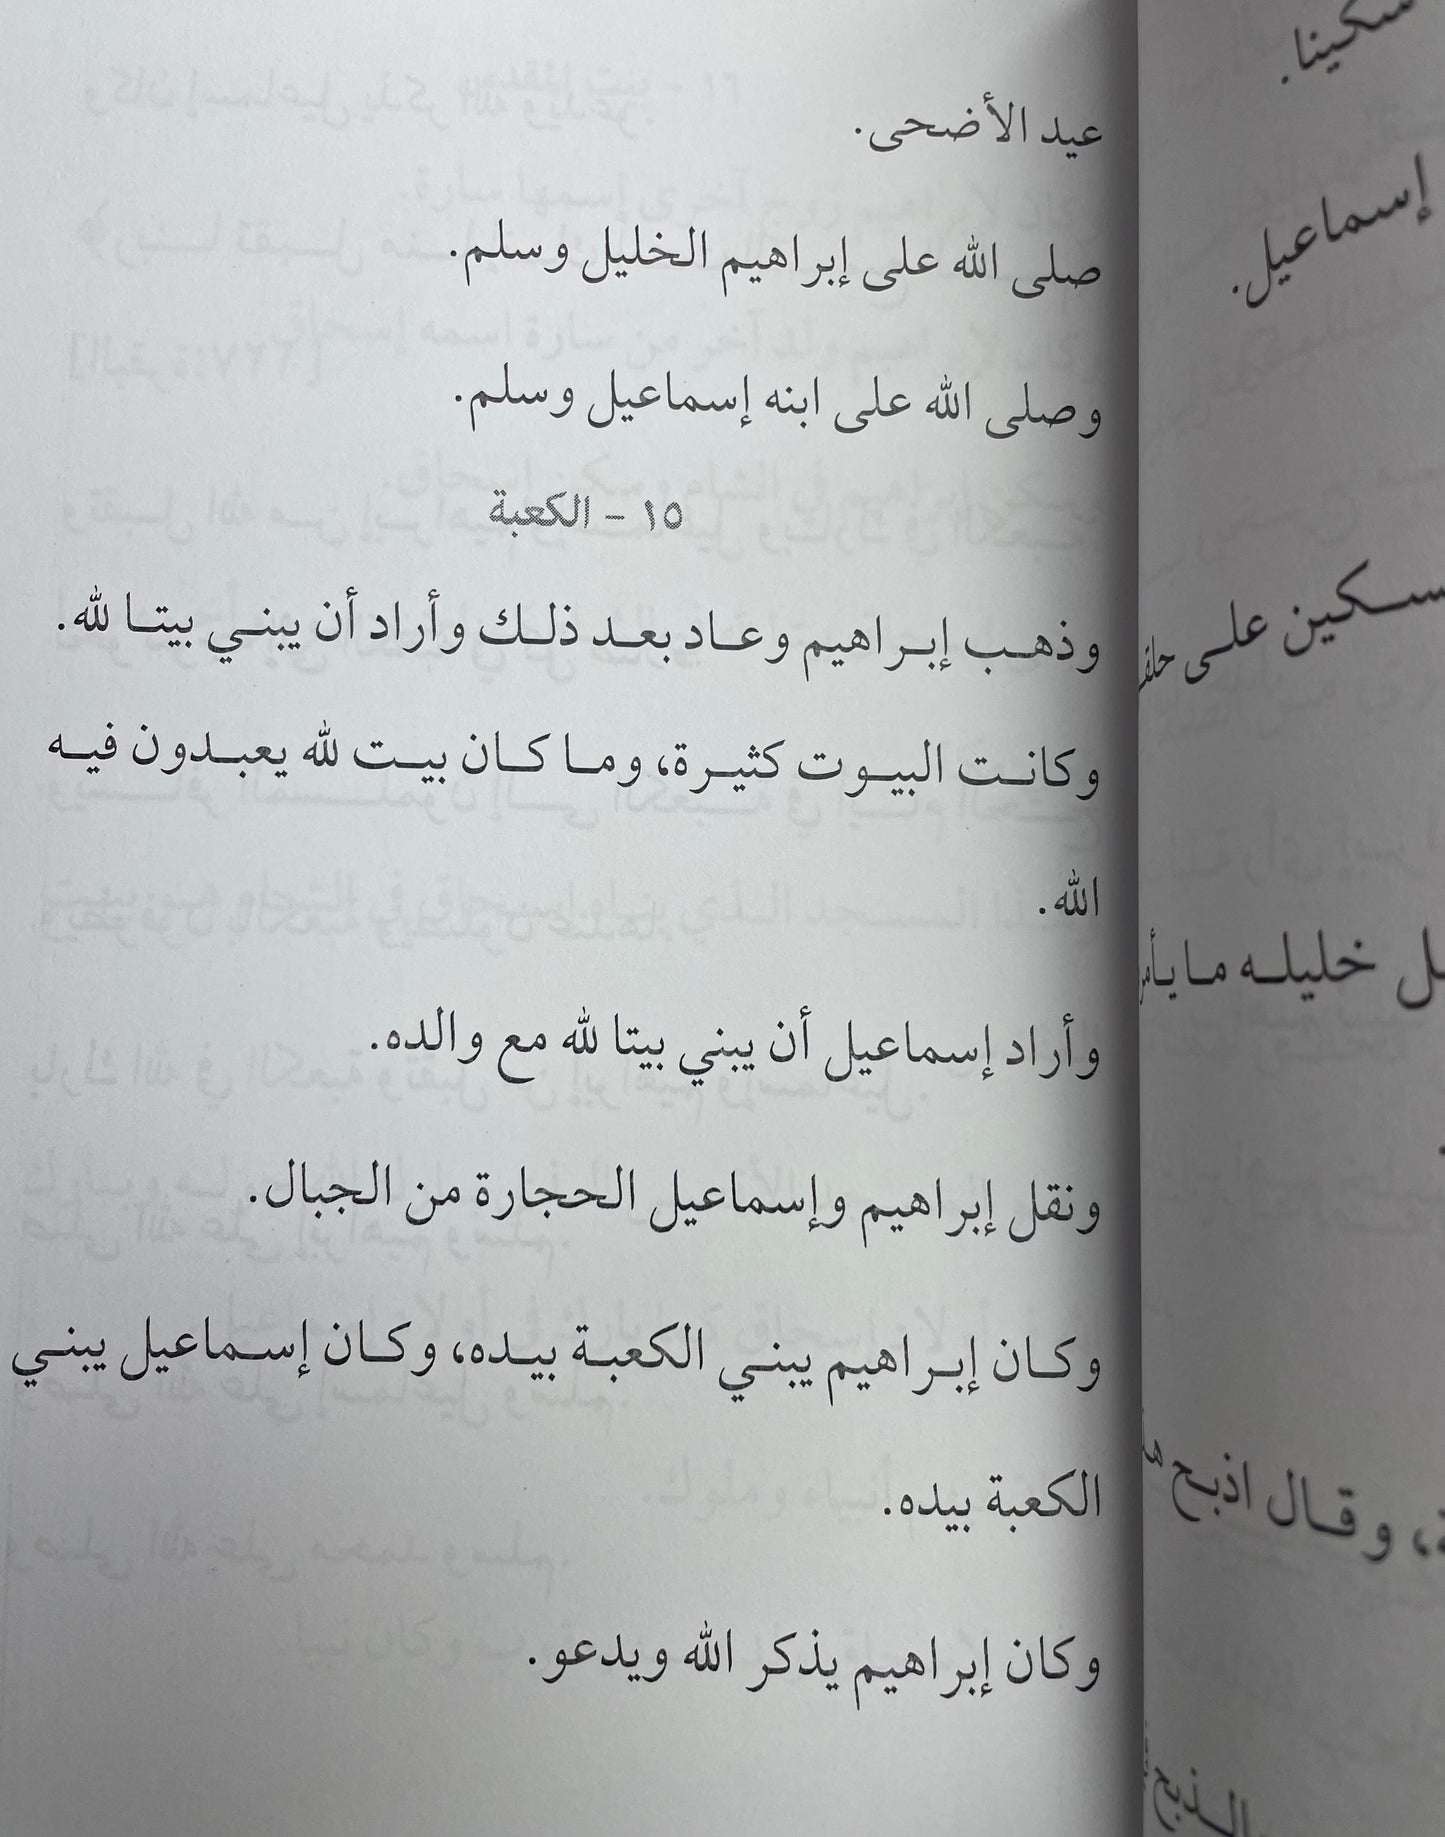 عيد الأضحى.
صلى الله على إبراهيم الخليل وسلم.
وصلى الله على ابنه إسماعيل وسلم.
١٥ - الكعبة
وذهب إبراهيم وعاد بعد ذلك وأراد أن يبني بيتا لله.
وكانت البيوت كثيرة، وما كان بيت لله يعبدون فيه
الله.
وأراد إسماعيل أن يبني بيتا لله مع والده.
ونقل إبراهيم وإسماعيل الحجارة من الجبال.
وكان إبراهيم يبني الكعبة بيده، وكان إسماعيل يبني
الكعبة بيده.
وكان إبراهيم يذكر الله ويدعو.
إسماعيل.
على
خليله ما
وقال اذبح